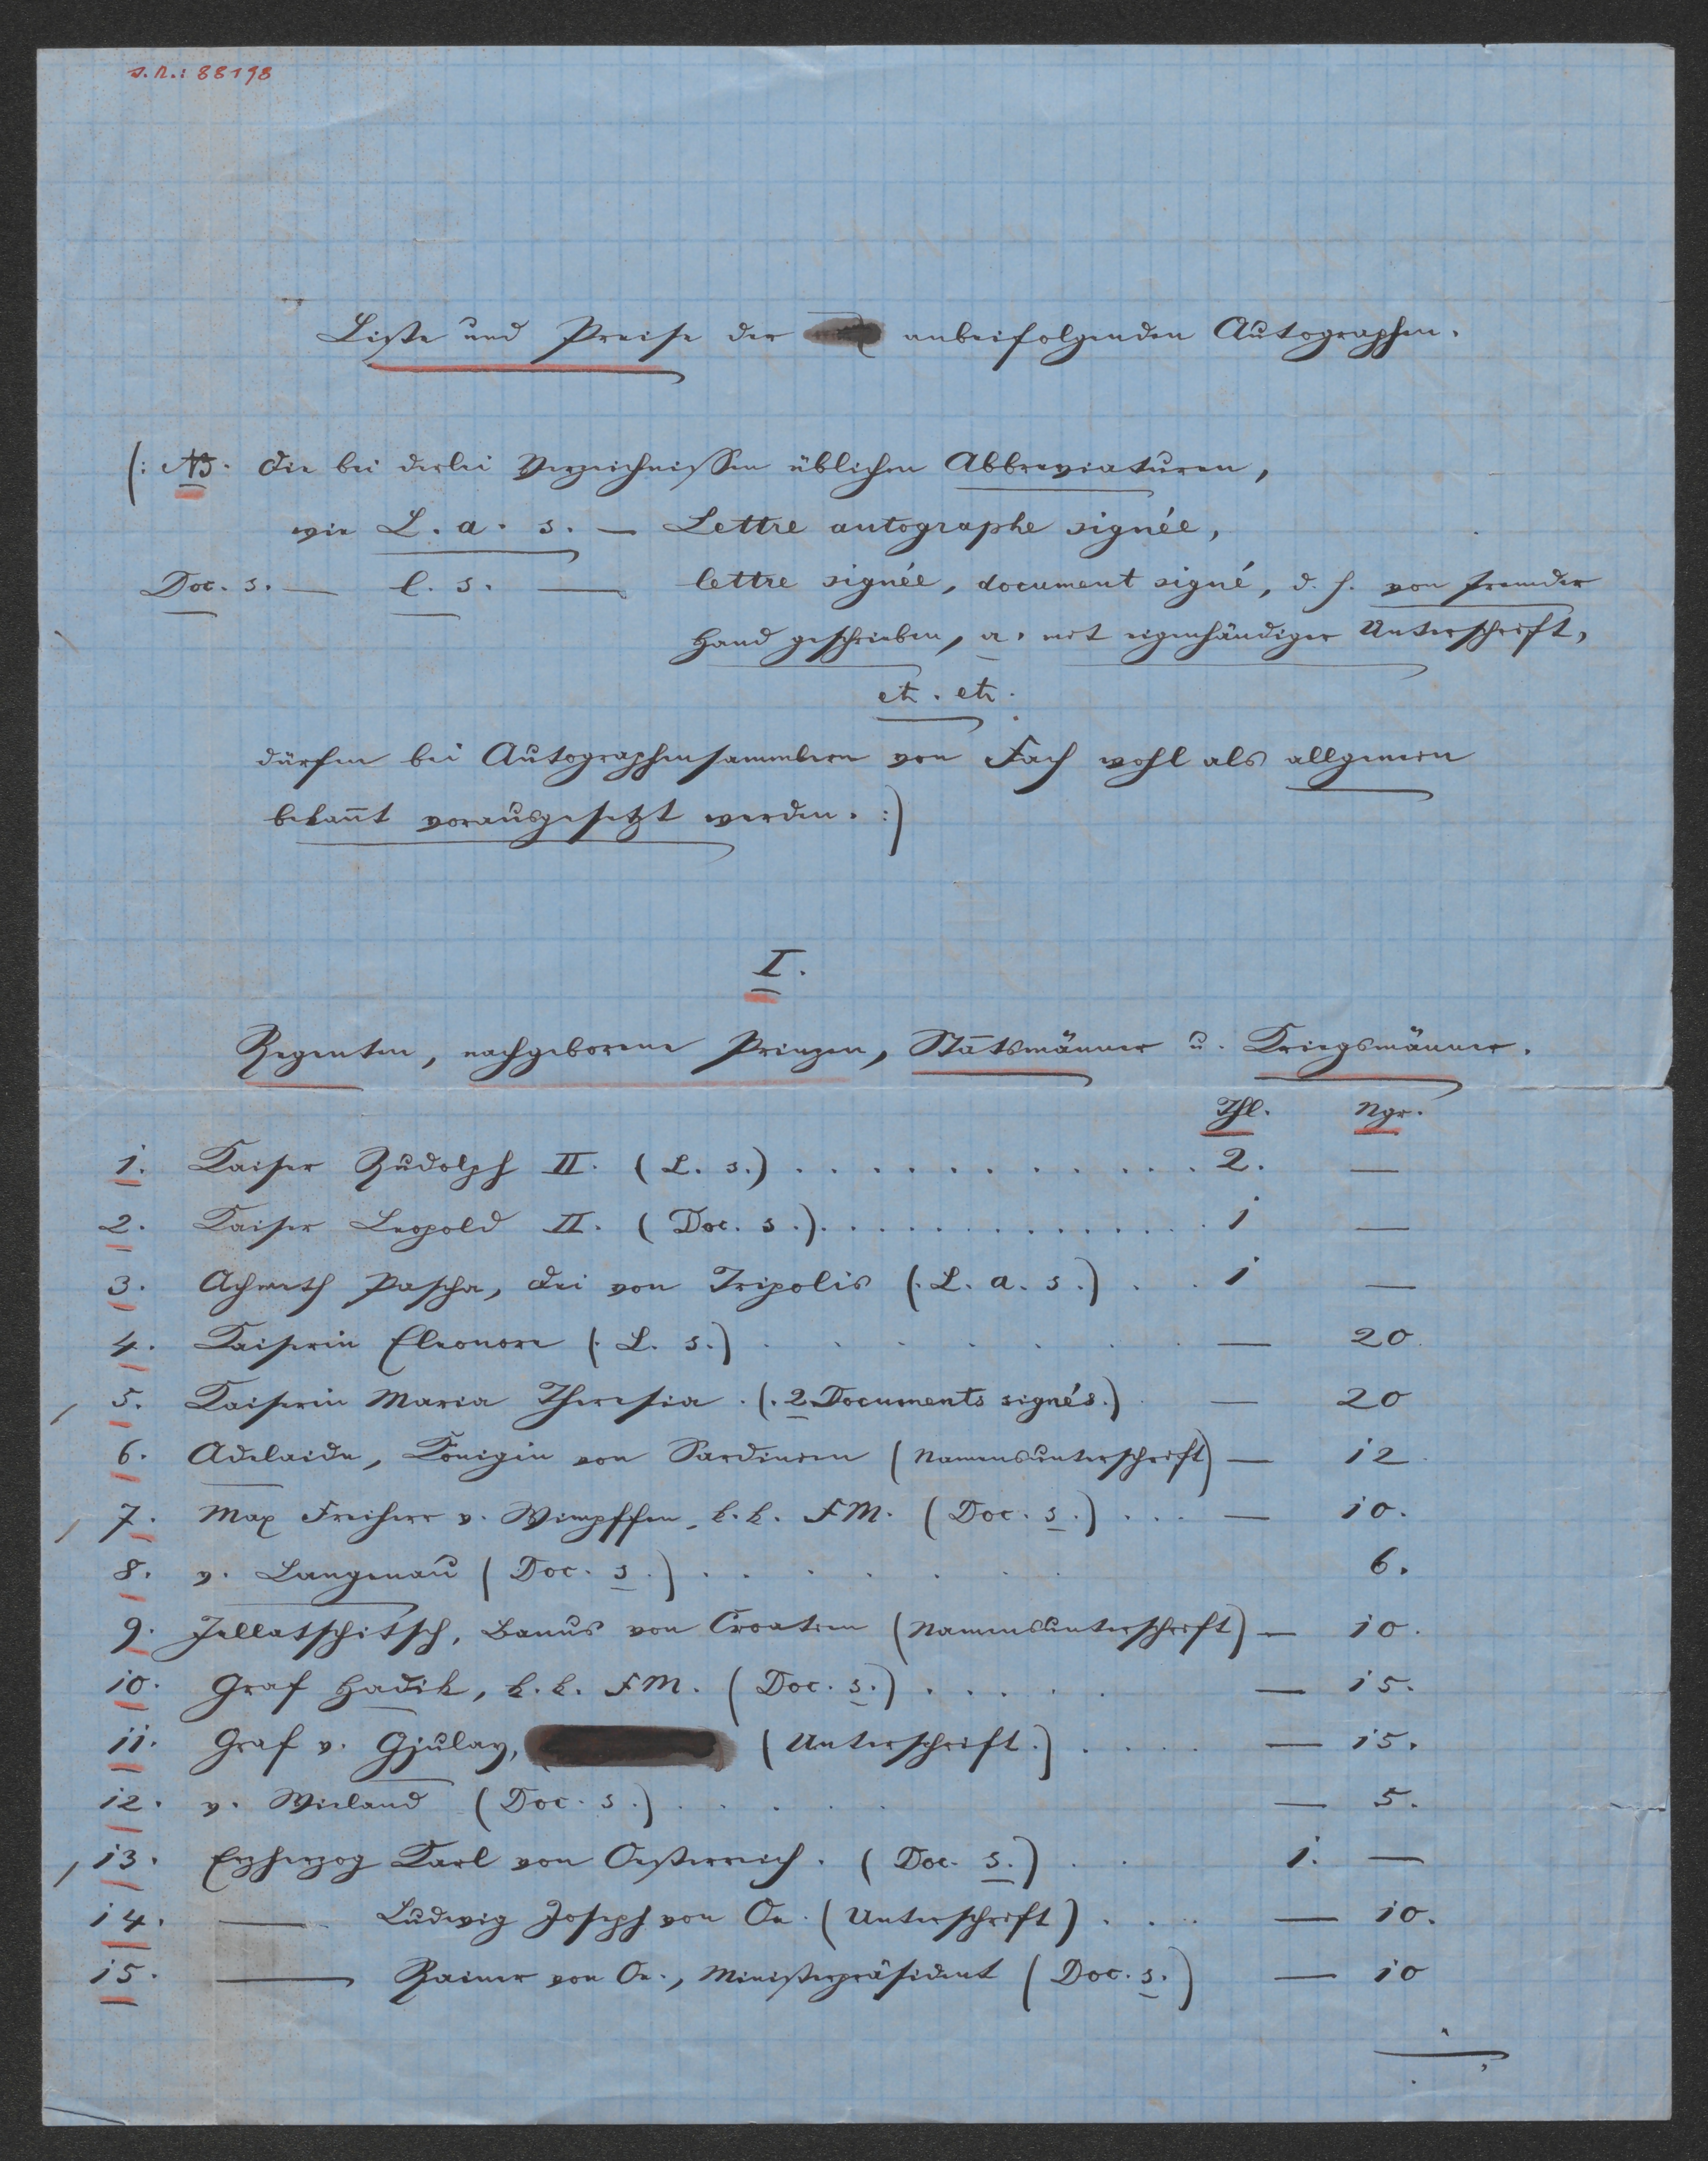 s. n.: 88198
Liste und Preise der anbeifolgenden Autographen.
(: NB. Die bei derlei Verzeichnissen üblichen Abbreviaturen,
wie L. a. s. — Lettre autographe signée,
Doc. s. — l. s. — lettre signée, document signé, d. h. von fremder
Hand geschrieben, u. mit eigenhändiger Unterschrift,
etc. etc.
dürfen bei Autographensammlern von Fach wohl als allgemein
bekan̄t vorausgesetzt werden. :)
I.
Regenten, nachgeborene Prinzen, Statsmänner u. Kriegsmänner.
Thl. Ngr.
1. Kaiser Rudolph II. (L. s.) . . . . . . . . . . . . . 2. —
2. Kaiser Leopold II. (Doc. s.) . . . . . . . . . . . . . 1 —
3. Achmeth Pascha, Dei von Tripolis (. L. a. s.) . . 1 —
4. Kaiserin Eleonore (. L. s.) . . . . . . . — 20.
5. Kaiserin Maria Theresia . (. 2 Documents signés.) — 20
6. Adelaide, Königin von Sardinien (Namensunterschrift) — 12.
7. Max Freiherr v. Wimpffen, k. k. FM. (Doc. s.) . . . — 10.
8. v. Langenau (Doc. s.) . . . . . . 6.
9. Jellatschitsch, Banus von Croatien (Namensunterschrift) — 10.
10. Graf Hadik, k. k. FM. (Doc. s.) . . . . . — 15.
11. Graf v. Gjulay, (Unterschrift.) . . . . — 15.
12. v. Wieland (Doc. s.) . . . . . — 5.
13. Erzherzog Karl von Oesterreich. (Doc. s.) . . 1. —
14. — Ludwig Joseph von Oe. (Unterschrift) . . . — 10.
15. — Rainer von Oe., Ministerpräsident (Doc. s.) — 10